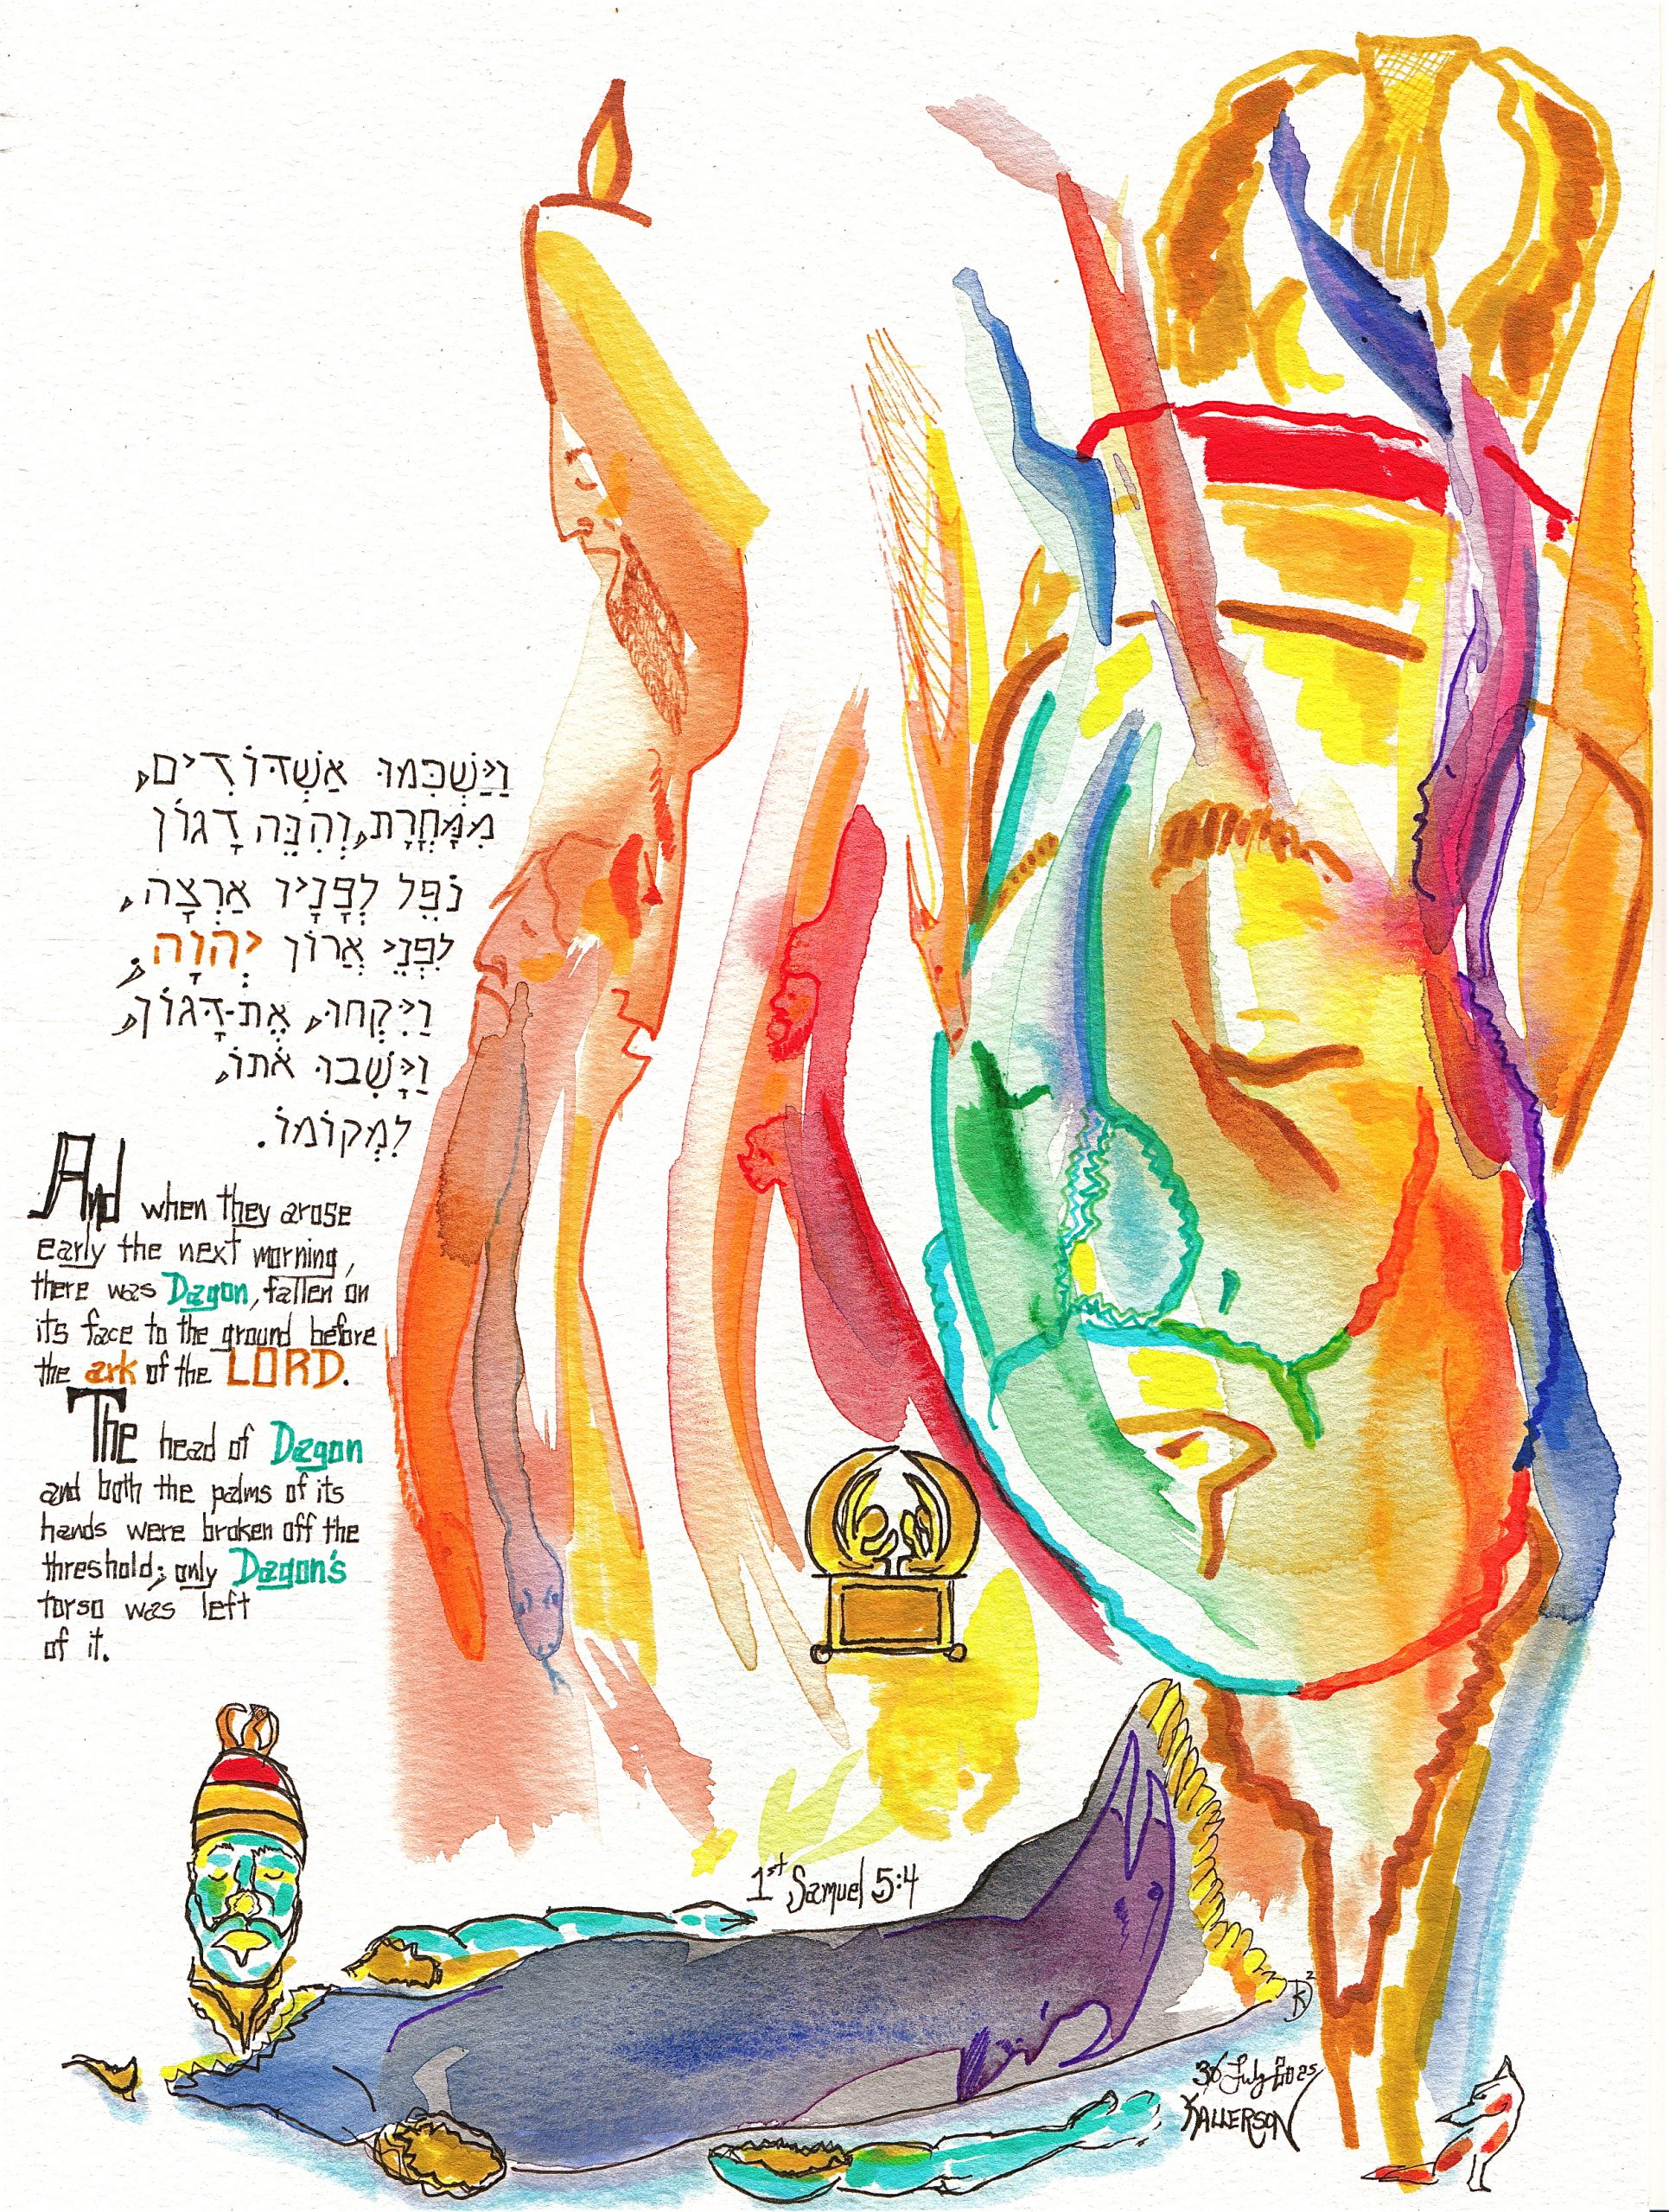 וַיַּשְׁכִּמוּ אַשְׁדּוֹדִים,
מִמָּחֳרָת, וְהִנֵּה דָגוֹן
נֹפֵל לְפָנָיו אַרְצָה,
לִפְנֵי אֲרוֹן יְהוָה;
וַיִּקְחוּ, אֶת-דָּגוֹן,
וַיָּשִׁבוּ אֹתוֹ,
לִמְקוֹמוֹ.
And when they arose
early the next morning,
there was Dagon, fallen on
its face to the ground before
the ark of the LORD.
The head of Dagon
and both the palms of its
hands were broken off the
threshold; only Dagon's
torso was left
of it.
1st Samuel 5:4
KALLERSON